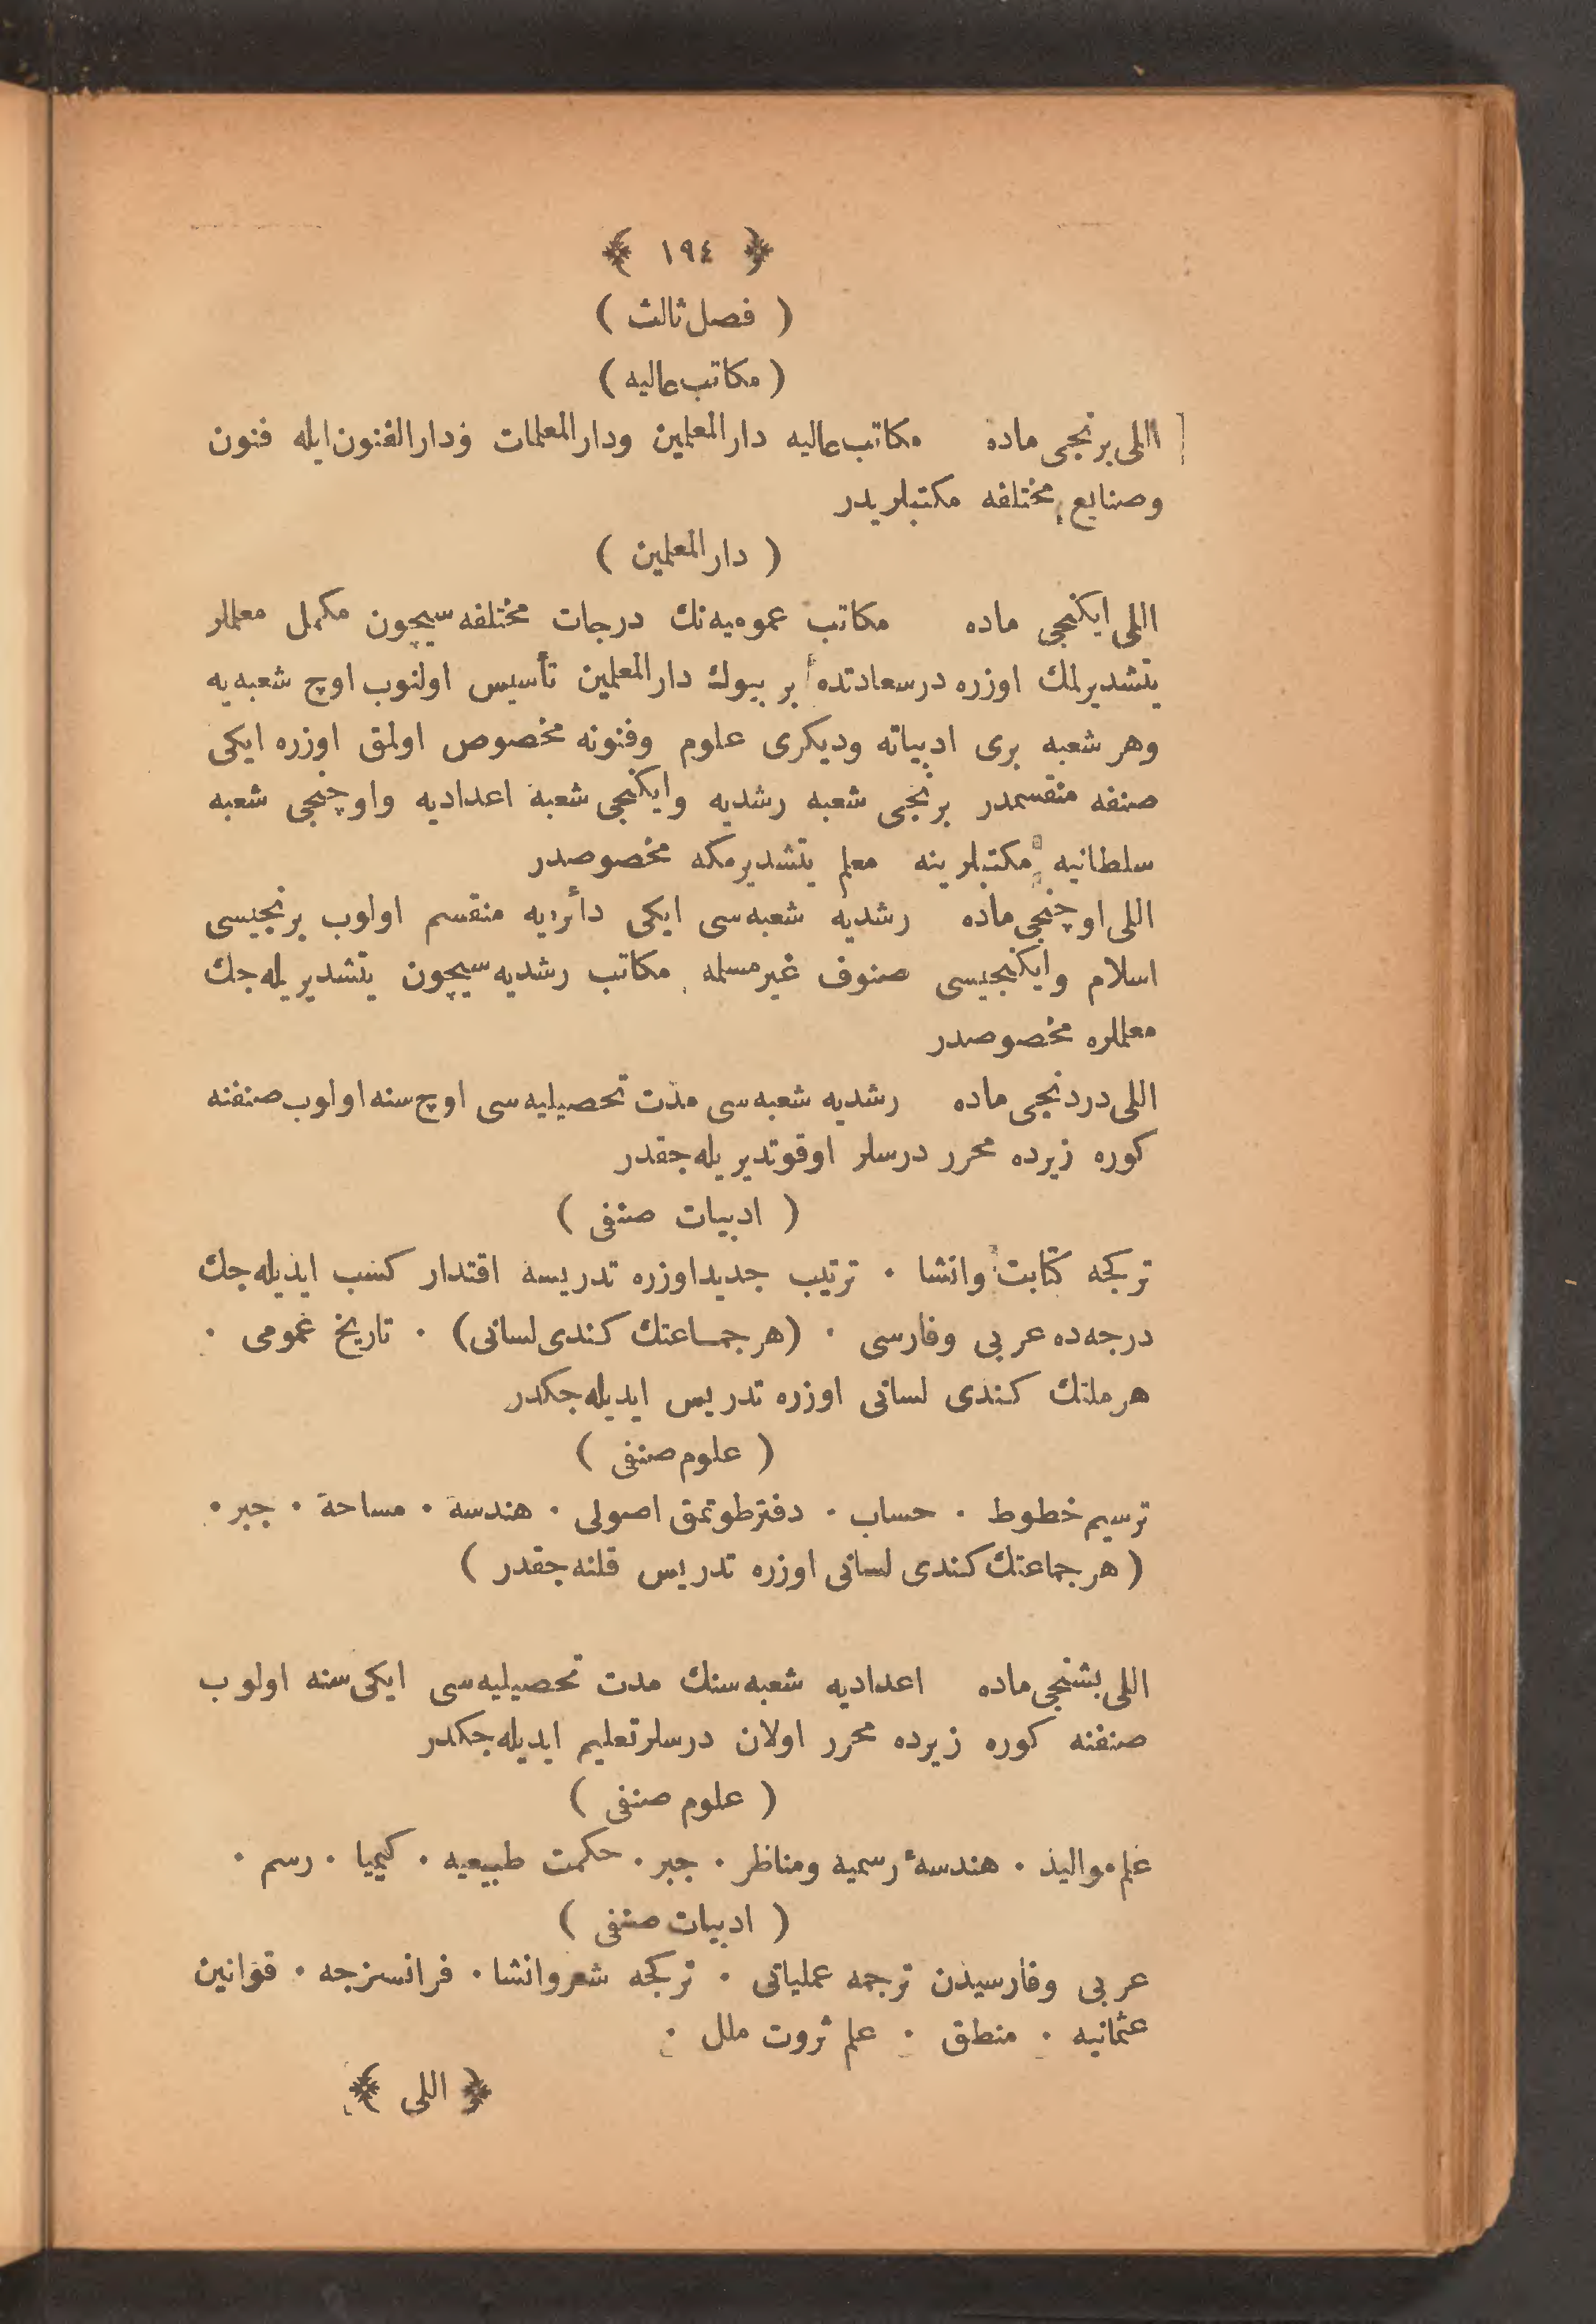 ﴿ ١٩٤ ﴾
( فصل ثالث )
( مكاتب عاليه )
اللی برنجی ماده مكاتب عاليه دار المعلمين ودار المعلمات ودار الفنون ايله فنون
وصنايع مختلفه مكتبلريدر
( دار المعلمين )
اللی ايكنجی ماده مكاتب عموميه‌نك درجات مختلفه‌سيچون مكمل معلملر
يتشديرلمك اوزره درسعادتده بر بيوك دار المعلمين تأسيس اولنوب اوچ شعبه‌يه
وهر شعبه بری ادبياته وديكری علوم وفنونه مخصوص اولمق اوزره ايكی
صنفه منقسمدر برنجی شعبه رشديه وايكنجی شعبه اعداديه واوچنجی شعبه
سلطانيه مكتبلرينه معلم يتشديرمكه مخصوصدر
اللی اوچنجی ماده رشديه شعبه‌سی ايكی دائره‌يه منقسم اولوب برنجيسی
اسلام وايكنجيسی صنوف غيرمسلمه مكاتب رشديه‌سيچون يتشديريله‌جك
معلملره مخصوصدر
اللی دردنجی ماده رشديه شعبه‌سی مدت تحصيليه‌سی اوچ سنه اولوب صنفنه
كوره زيرده محرر درسلر اوقوتديريله‌جقدر
( ادبيات صنفی )
تركجه كتابت وانشا ٠ ترتيب جديد اوزره تدريسه اقتدار كسب ايديله‌جك
درجه‌ده عربی وفارسی ٠ (هر جماعتك كندی لسانی) ٠ تاريخ عمومی ٠
هر ملتك كندی لسانی اوزره تدريس ايديله‌جكدر
( علوم صنفی )
ترسيم خطوط ٠ حساب ٠ دفتر طوتمق اصولی ٠ هندسه ٠ مساحة ٠ جبر ٠
( هر جماعتك كندی لسانی اوزره تدريس قلنه‌جقدر )
اللی بشنجی ماده اعداديه شعبه‌سنك مدت تحصيليه‌سی ايكی سنه اولوب
صنفنه كوره زيرده محرر اولان درسلر تعليم ايديله‌جكدر
( علوم صنفی )
علم مواليد ٠ هندسهٔ رسميه ومناظر ٠ جبر ٠ حكمت طبيعيه ٠ كيميا ٠ رسم ٠
( ادبيات صنفی )
عربی وفارسيدن ترجمه عملياتی ٠ تركجه شعر وانشا ٠ فرانسزجه ٠ قوانين
عثمانيه ٠ منطق ٠ علم ثروت ملل ٠
﴿ اللی ﴾